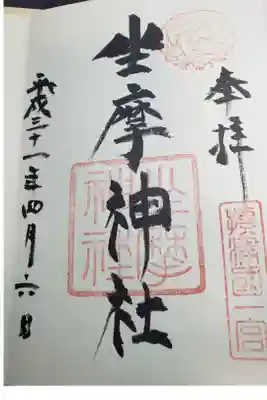 奉拝
摂津国一宮
坐摩神社
坐摩神社
平成三十一年四月六日